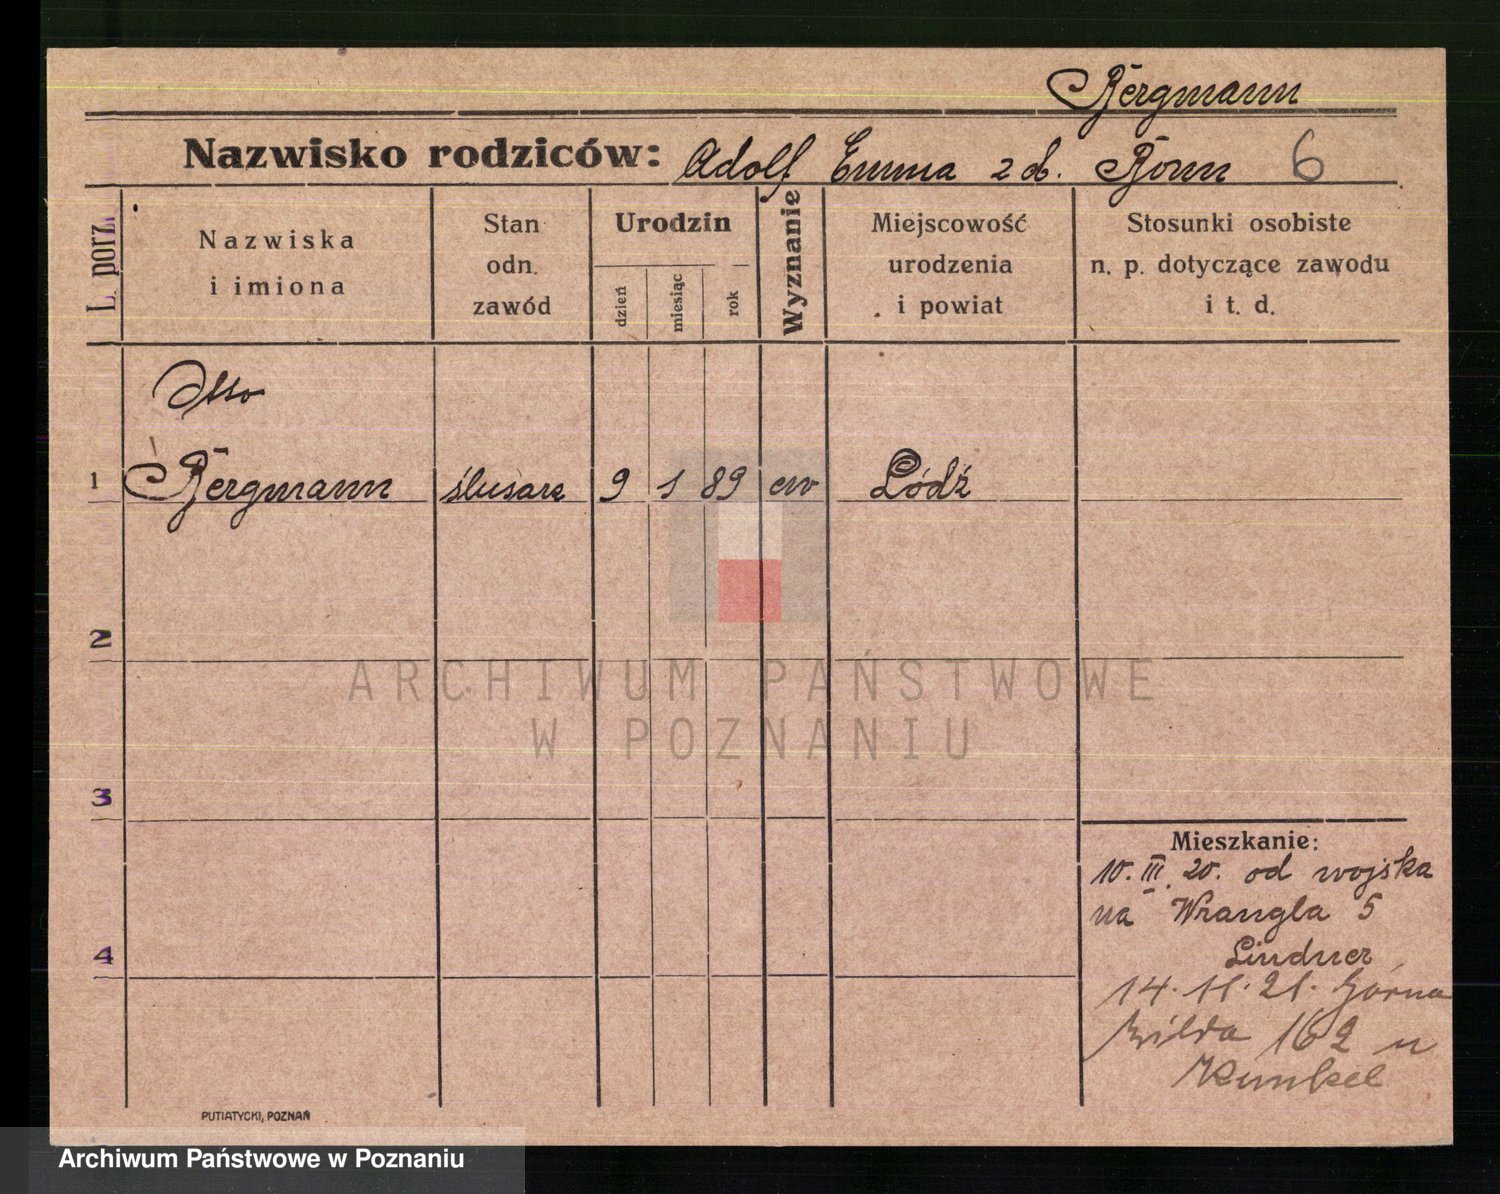 Bergmann
Nazwisko rodziców: Adolf Emma z d. Born 6
L. porz.
Nazwiska
i imiona
Stan
odn.
zawód
Urodzin
dzień
miesiąc
rok
Wyznanie
Miejscowość
urodzenia
i powiat
Stosunki osobiste
n. p. dotyczące zawodu
i t. d.
Otto
1 Bergmann ślusarz 9 1 89 ew Łódź
2
3
4
Mieszkanie:
10. III. 20. od wojska
na Wrangla 5
Lindner
14. 11. 21. Górna
Wilda 162 u
Kunkel
PUTIATYCKI, POZNAŃ
ARCHIWUM PAŃSTWOWE
W POZNANIU
Archiwum Państwowe w Poznaniu